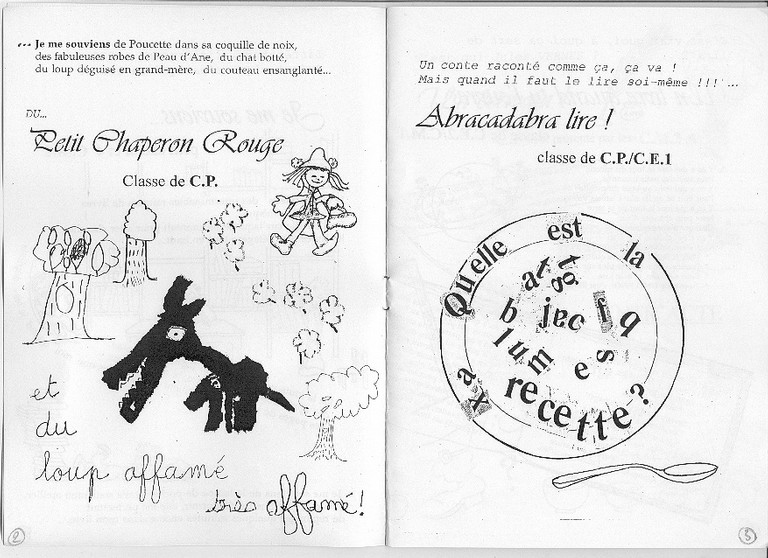 ... Je me souviens de Poucette dans sa coquille de noix,
des fabuleuses robes de Peau d'Ane, du chat botté,
du loup déguisé en grand-mère, du couteau ensanglanté...
DU...
Petit Chaperon Rouge
Classe de C.P.
et
du
loup affamé
très affamé!
2
Un conte raconté comme ça, ça va !
Mais quand il faut le lire soi-même !!! ...
Abracadabra lire !
classe de C.P./C.E.1
Quelle est la
recette?
3